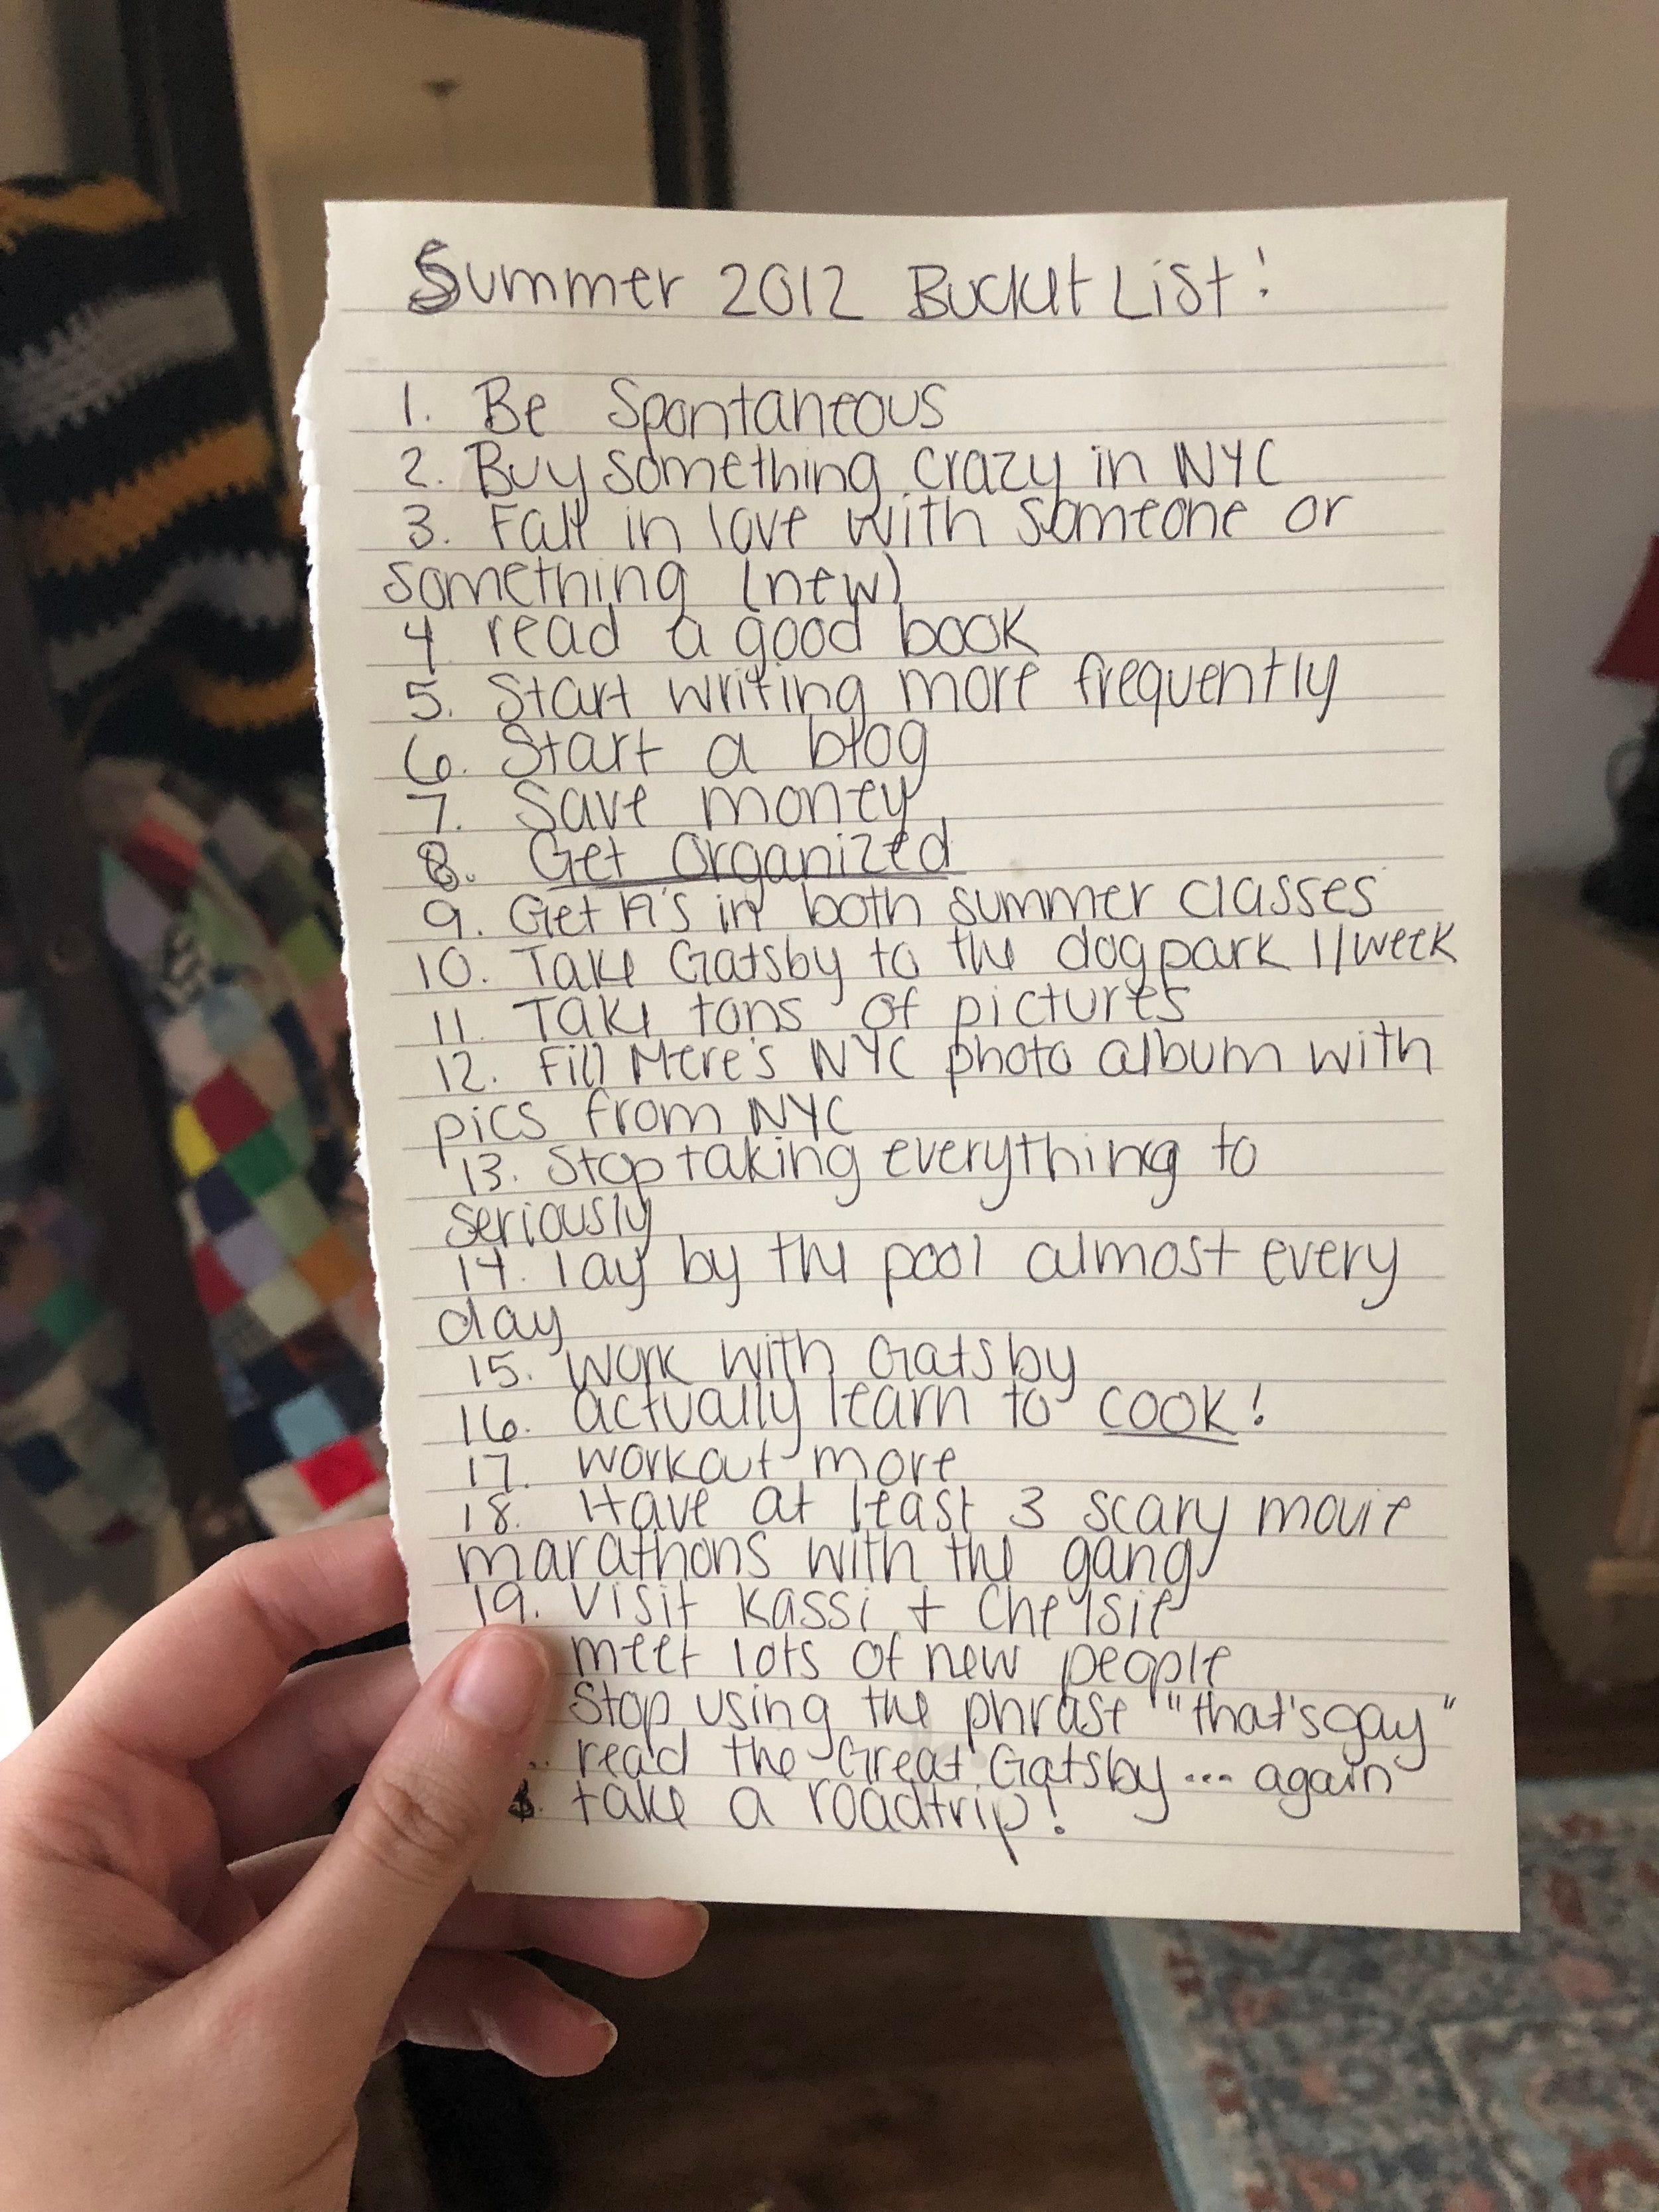 Summer 2012 Bucket List!
1. Be Spontaneous
2. Buy something crazy in NYC
3. Fall in love with someone or
something (new)
4 read a good book
5. Start writing more frequently
6. Start a blog
7. Save money
8. Get Organized
9. Get A's in both summer classes
10. Take Gatsby to the dogpark 1/week
11. Take tons of pictures
12. Fill Mere's NYC photo album with
pics from NYC
13. Stop taking everything to
seriously
14. lay by the pool almost every
day
15. Work with Gatsby
16. actually learn to cook!
17. workout more
18. Have at least 3 scary movie
marathons with the gang
19. Visit Kassi + Chelsie
meet lots of new people
Stop using the phrase "that's gay"
read the Great Gatsby... again
take a roadtrip!